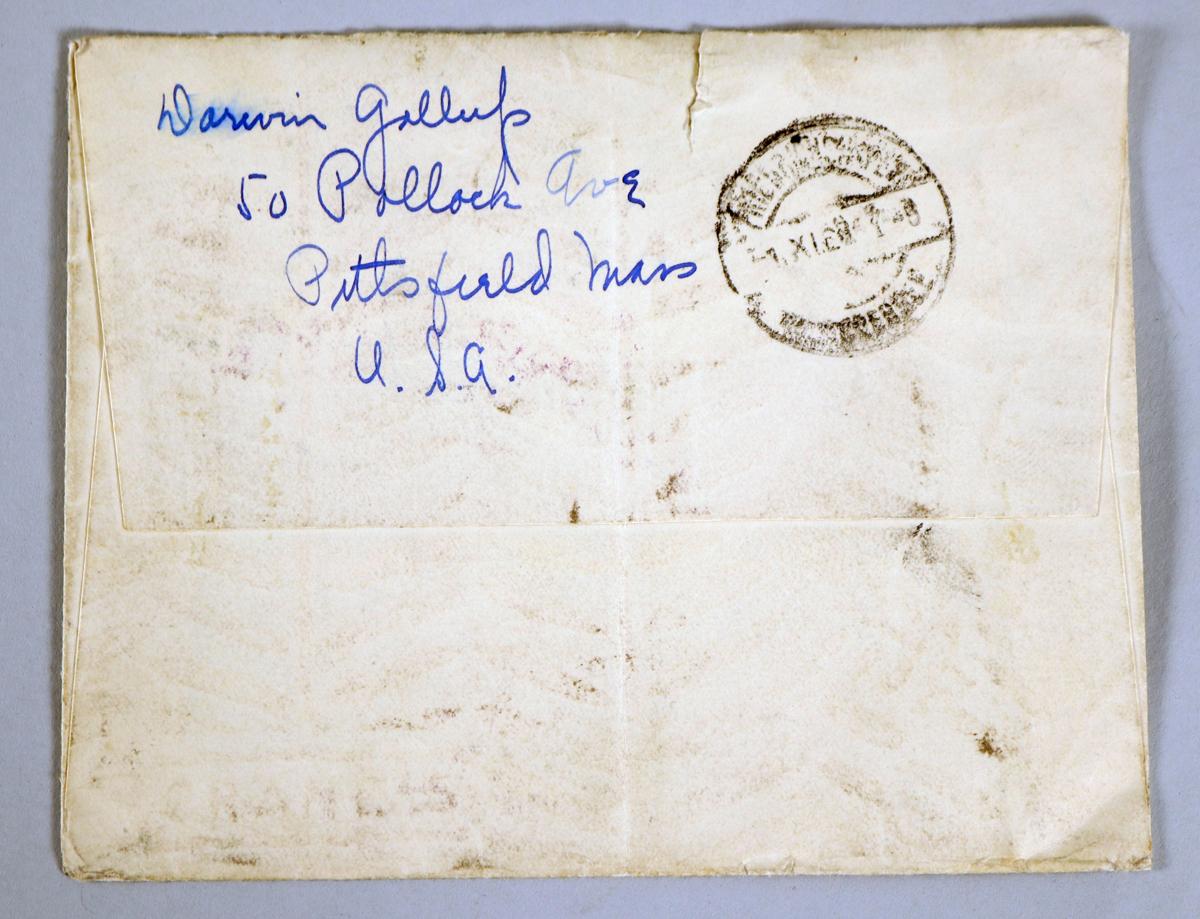 Darwin Gallup
50 Pollock Ave
Pittsfield Mass
U. S. A.
XI.